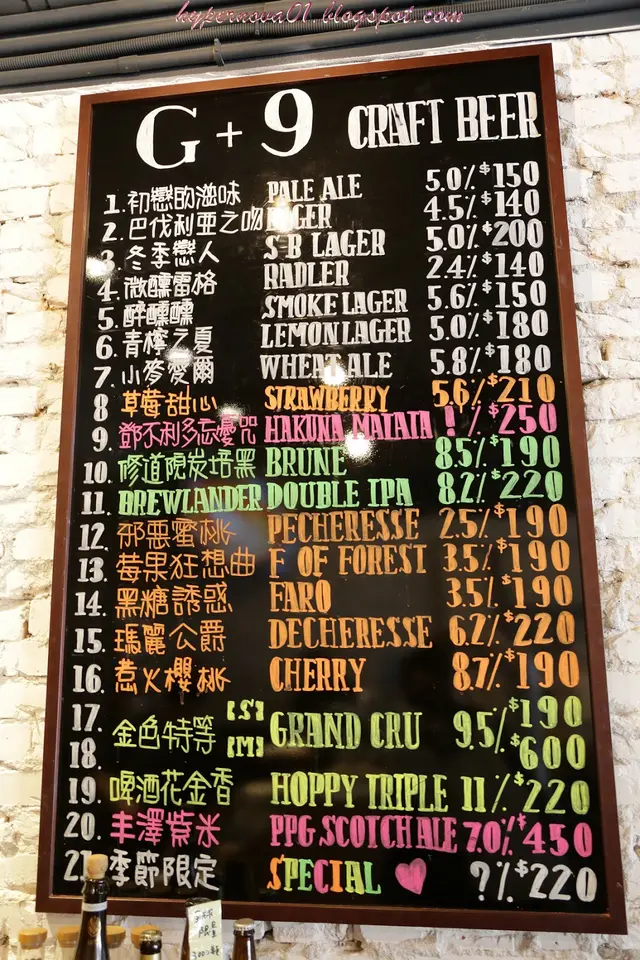 hypernova01.blogspot.com
G+9 CRAFT BEER
1. 初戀的滋味 PALE ALE 5.0% $150
2. 巴伐利亞之吻 LAGER 4.5% $140
3 冬季戀人 S-B LAGER 5.0% $200
4. 微醺雷格 RADLER 2.4% $140
5. 醉醺醺 SMOKE LAGER 5.6% $150
6. 青檸之夏 LEMON LAGER 5.0% $180
7. 小麥愛爾 WHEAT ALE 5.8% $180
8 草莓甜心 STRAWBERRY 5.6% $210
9. 鄧不利多忘憂咒 HAKUNA MATATA ! % $250
10. 修道院炭焙黑 BRUNE 8.5% $190
11. BREWLANDER DOUBLE IPA 8.2% $220
12 邪惡蜜桃 PECHERESSE 2.5% $190
13. 莓果狂想曲 F OF FOREST 3.5% $190
14. 黑糖誘惑 FARO 3.5% $190
15. 瑪麗公爵 DECHERESSE 6.2% $220
16. 惹火櫻桃 CHERRY 8.7% $190
17. 【S】 $190
金色特等 GRAND CRU 9.5%
18. 【M】 $600
19. 啤酒花金香 HOPPY TRIPLE 11% $220
20. 丰澤紫米 PPG SCOTCH ALE 7.0% $450
21. 季節限定 SPECIAL ♥ ?% $220